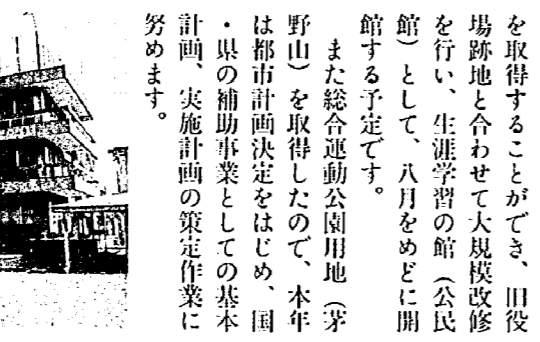 を取得することができ、旧役
場跡地と合わせて大規模改修
を行い、生涯学習の館（公民
館）として、八月をめどに開
館する予定です。
また総合運動公園用地（茅
野山）を取得したので、本年
は都市計画決定をはじめ、国
・県の補助事業としての基本
計画、実施計画の策定作業に
努めます。